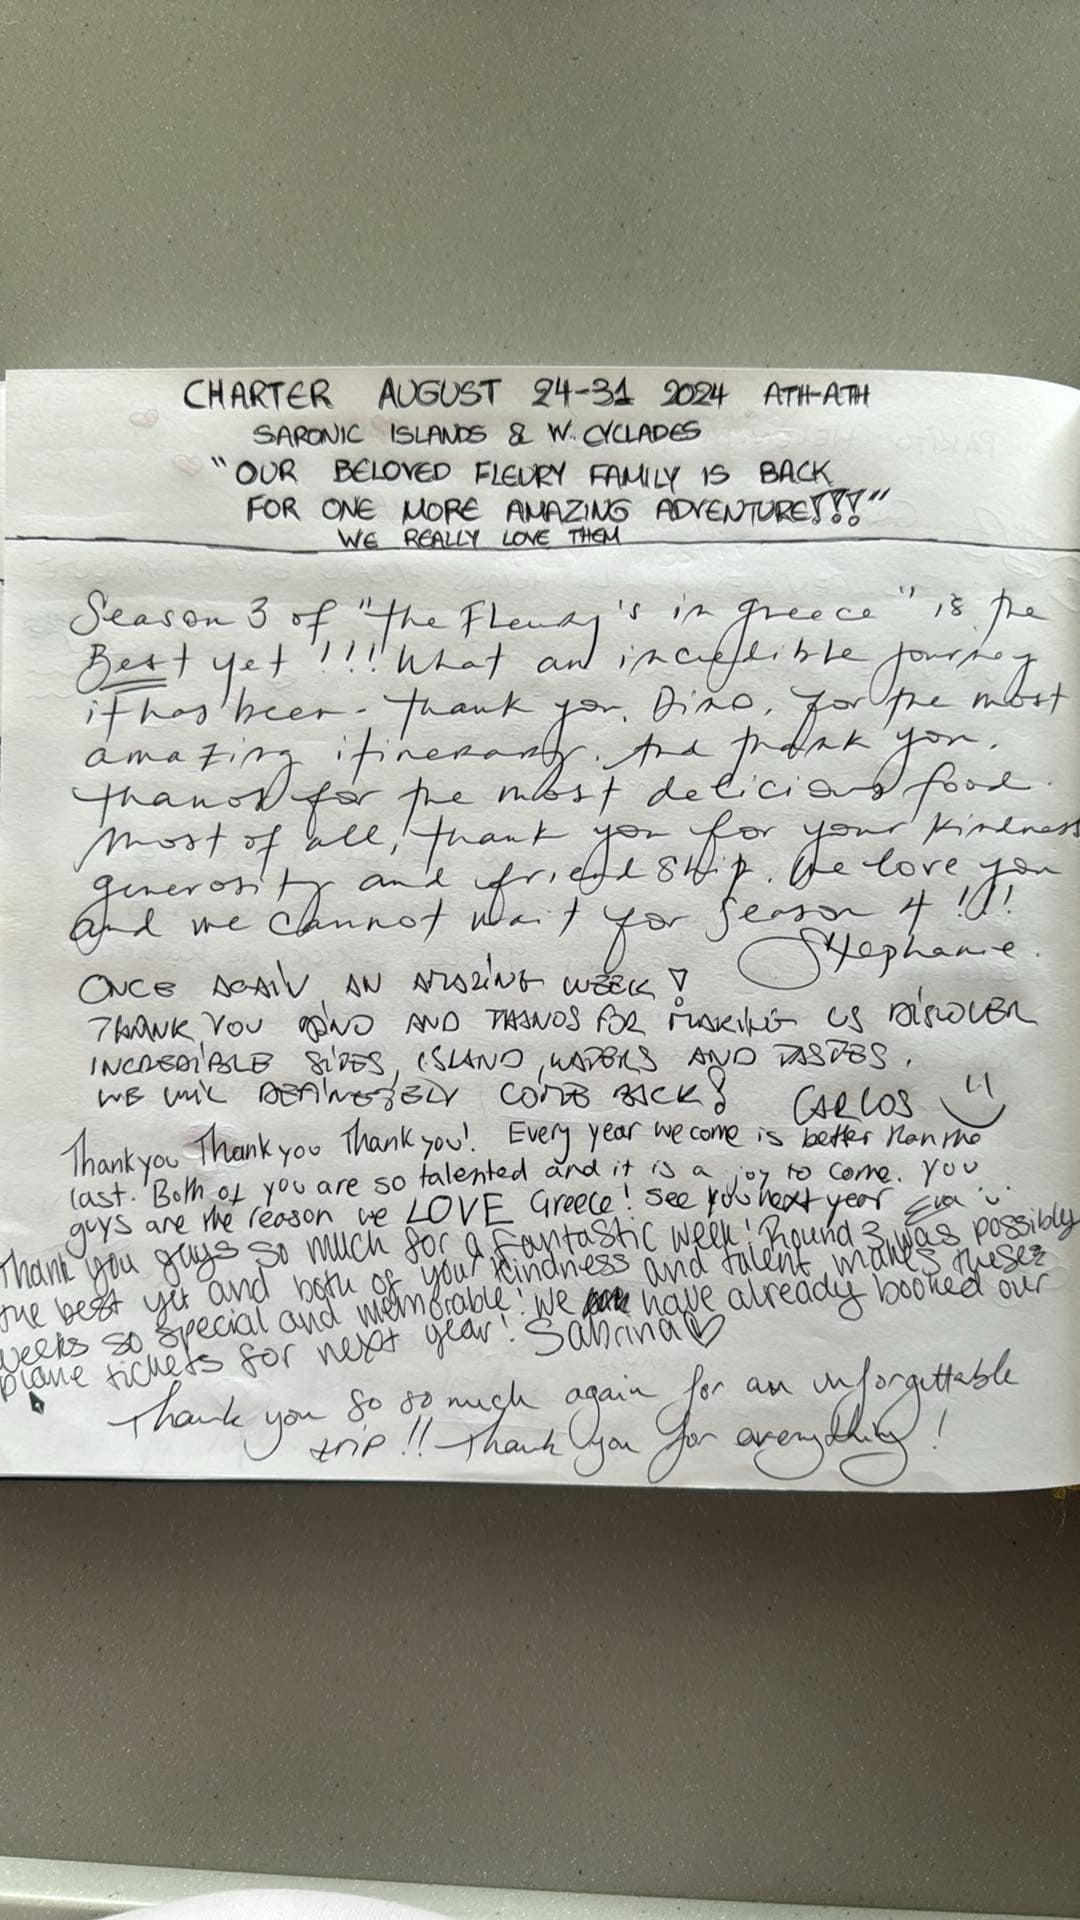 CHARTER AUGUST 24-31 2024 ATH-ATH
SARONIC ISLANDS & W. CYCLADES
"OUR BELOVED FLEURY FAMILY IS BACK
FOR ONE MORE AMAZING ADVENTURE!!!"
WE REALLY LOVE THEM
Season 3 of "the Fleury's in greece" is the
Best yet !!! What an incredible journey
it has been - thank you, Dino, for the most
amazing itinerary. And thank you,
thanos for the most delicious food.
Most of all, thank you for your kindness
generosity and friendship. We love you
and we cannot wait for Season 4 !!!
Stephanie.
ONCE AGAIN AN AMAZING WEEK!
THANK YOU DINO AND THANOS FOR MAKING US DISCOVER
INCREDIBLE SITES, ISLAND, WATERS AND TASTES.
WE WILL DEFINETELY COME BACK! CARLOS
Thank you Thank you Thank you! Every year we come is better than the
last. Both of you are so talented and it is a joy to come. You
guys are the reason we LOVE Greece! See you next year Eva
Thank you guys so much for a fantastic week! Round 3 was possibly
the best yet and both of your kindness and talent makes these
weeks so special and memorable! We have already booked our
plane tickets for next year! Sabrina♡
Thank you so so much again for an unforgettable
trip!! Thank you for everything!